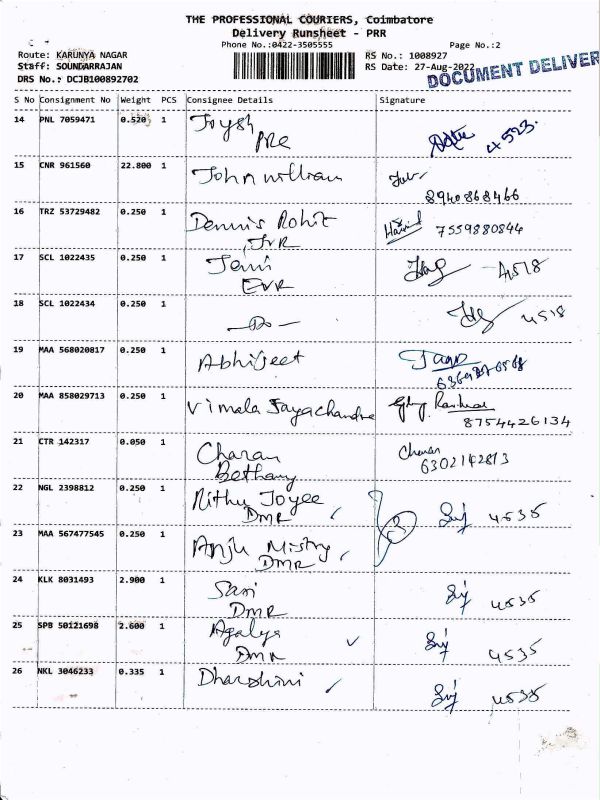 THE PROFESSIONAL COURIERS, Coimbatore
Delivery Runsheet - PRR
Phone No.:0422-3505555
Page No.:2
Route: KARUNYA NAGAR
Staff: SOUNDARRAJAN
DRS No.: DCJB100892702
RS No.: 1008927
RS Date: 27-Aug-2022
DOCUMENT DELIVER
S No Consignment No Weight PCS Consignee Details Signature
14 PNL 7059471 0.520 1 4523
15 CNR 961560 22.800 1 John william
8940868466
16 TRZ 53729482 0.250 1 Dennis Rohit 7559880844
JVR
17 SCL 1022435 0.250 1 Jemi 4518
EVR
18 SCL 1022434 0.250 1 -Do- 4518
19 MAA 568020817 0.250 1 Abhijeet
20 MAA 858029713 0.250 1 Vimala Jayachandra
8754426134
21 CTR 142317 0.050 1 Charan Charan
Bethany 6302142813
22 NGL 2398812 0.250 1 Nithu Joyee 4535
DMR
3
23 MAA 567477545 0.250 1 Anju Mistry
DMR
24 KLK 8031493 2.900 1 Sari 4535
DMR
25 SPB 50121698 2.600 1 Agalya 4535
DMR
26 NKL 3046233 0.335 1 Dharshini 4535